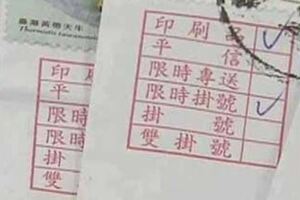 臺灣黃褐天牛
Thermistis taiwanensis
印刷品
平信
限時專送
限時掛號
掛號
雙掛號
印
平
限時
限時
掛
雙